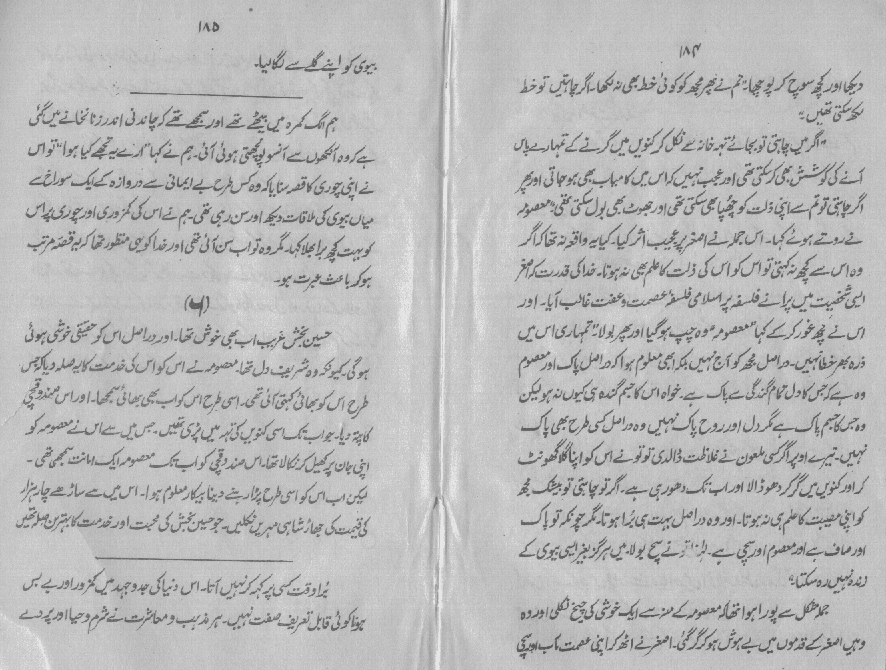 ۱۸۴
دیکھا اور کچھ سوچ کر پوچھا۔ تم نے پھر مجھ کو کوئی خط بھی نہ لکھا۔ اگر چاہتیں تو خط
لکھ سکتی تھیں۔"
"اگر میں چاہتی تو بجائے تہہ خانہ سے نکل کر کنویں میں گرنے کے تمہارے پاس
آنے کی کوشش بھی کر سکتی تھی اور عجب نہیں کہ اس میں کامیاب بھی ہو جاتی اور پھر
اگر چاہتی تو تم سے اپنی ذلت کو چھپا بھی سکتی تھی اور جھوٹ بھی بول سکتی تھی" معصومہ
نے روتے ہوئے کہا۔ اس جملہ نے اصغر پر عجیب اثر کیا۔ کیا یہ واقعہ نہ تھا کہ اگر
وہ اس سے کچھ نہ کہتی تو اس کو اس کی ذلت کا علم بھی نہ ہوتا۔ خدا کی قدرت کہ اصغر
ایسی شخصیت میں پرانے فلسفہ پر اسلامی فلسفۂ عصمت و عفت غالب آیا۔ اور
اس نے کچھ غور کر کے کہا "معصومہ وہ چپ ہو گیا اور پھر بولا" تمہاری اس میں
ذرہ بھر خطا نہیں۔ دراصل مجھ کو آج نہیں بلکہ ابھی معلوم ہوا کہ دراصل پاک اور معصوم
وہ ہے کہ جس کا دل تمام گندگی سے پاک ہے۔ خواہ اس کا جسم گندہ ہی کیوں نہ ہو لیکن
وہ جس کا جسم پاک ہے مگر دل اور روح پاک نہیں وہ دراصل کسی طرح بھی پاک
نہیں۔ تیرے اوپر اگر کسی ملعون نے غلاظت ڈال دی تو تو نے اس کو اپنا گلا گھونٹ
کر اور کنویں میں گر کر دھو ڈالا اور اب تک دھو رہی ہے۔ اگر تو چاہتی تو بیشک مجھ
کو اپنی مصیبت کا علم ہی نہ ہوتا۔ اور وہ دراصل بہت ہی برا ہوتا۔ مگر چونکہ تو پاک
اور صاف ہے اور معصوم اور سچی ہے۔ لہٰذا تو نے سچ بولا۔ میں ہرگز بغیر ایسی بیوی کے
زندہ نہیں رہ سکتا۔"
جملہ مشکل سے پورا ہوا تھا کہ معصومہ کے منہ سے ایک خوشی کی چیخ نکلی اور وہ
وہیں اصغر کے قدموں میں بے ہوش ہو کر گر گئی۔ اصغر نے اٹھ کر اپنی عصمت مآب اور سچی
۱۸۵
بیوی کو اپنے گلے سے لگا لیا۔
ہم الگ کمرہ میں بیٹھے تھے اور سمجھے تھے کہ چاندنی اندر زنانخانے میں گئی
ہے کہ وہ آنکھوں سے آنسو پونچھتی ہوئی آئی۔ ہم نے کہا "ارے یہ تجھے کیا ہوا" تو اس
نے اپنی چوری کا قصہ سنایا کہ وہ کس طرح بے ایمانی سے دروازہ کے ایک سوراخ سے
میاں بیوی کی ملاقات دیکھ اور سن رہی تھی۔ ہم نے اس کی کمزوری اور چوری پر اس
کو بہت کچھ برا بھلا کہا۔ مگر وہ تو اب سن آئی تھی اور خدا کو یہی منظور تھا کہ یہ قصہ مرتب
ہو کر باعث عبرت ہو۔
حسین بخش غریب اب بھی خوش تھا۔ اور دراصل اس کو حقیقی خوشی ہوئی
ہو گی۔ کیونکہ وہ شریف دل تھا۔ معصومہ نے اس کو اس کی خدمت کا یہ صلہ دیا کہ جس
طرح اس کو بھائی کہتی آئی تھی۔ اسی طرح اس کو اب بھی بھائی سمجھا۔ اور اس صندوقچی
کا پتہ دیا۔ جو اب تک اسی کنویں کی تہہ میں پڑی تھیں۔ جس میں سے اس نے معصومہ کو
اپنی جان پر کھیل کر نکالا تھا۔ اس صندوقچی کو اب تک معصومہ ایک امانت سمجھی تھی۔
لیکن اب اس کو اسی طرح پڑا رہنے دینا بیکار معلوم ہوا۔ اس میں سے ساڑھے چار ہزار
کی قیمت کی جھاڑ شاہی مہریں نکلیں۔ جو حسین بخش کی محبت اور خدمت کا بہترین صلہ تھیں
برا وقت کسی پر کہہ کر نہیں آتا۔ اس دنیا کی جدوجہد میں کمزور اور بے بس
ہونا کوئی قابل تعریف صفت نہیں۔ ہر مذہب و معاشرت نے شرم و حیا اور پردے